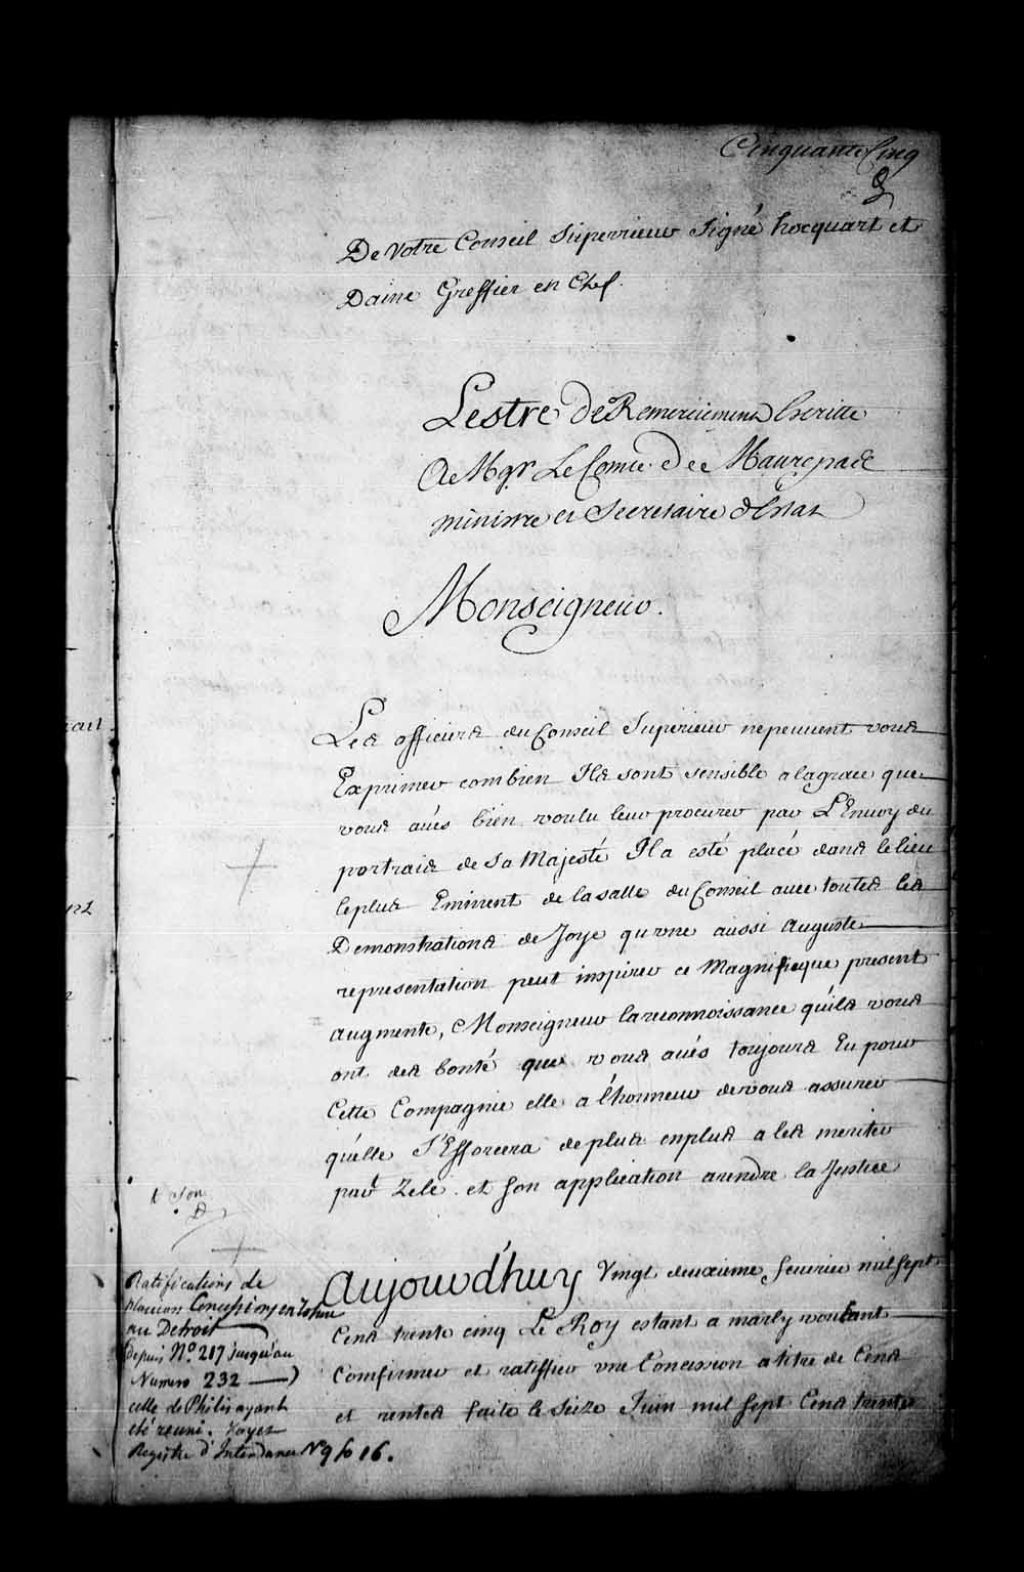 Cinquante Cinq
De Votre Conseil Superrieur Signé hocquart et
Daine Greffier en Chef.
Lestre de Remerciement Escritte
A Mgr Le Comte De Maurepas
ministre et Secretaire d'Estat
Monseigneur.
Les officiers du Conseil Superieur ne peuvent vous
Exprimer combien Ils sont sensible a la grace que
vous avés bien voulu leur procurer par L'Envoy du
portrait de Sa Majesté Il a esté placé dans le lieu
le plus Eminent de la salle du Conseil avec toutes les
Demonstrations de Joye qu'une aussi Auguste
representation peut inspirer ce Magnifique present
augmente, Monseigneur la reconnoissance qu'ils vous
ont des bonté que vous avés toujours Eu pour
Cette Compagnie elle a l'honneur de vous assurer
qu'elle S'Efforcera de plus en plus a les meriter
par Zele et son application a rendre la Justice
1 Son
Aujourd'huy Vingt deuxieme fevrier mil sept
Cens trente cinq Le Roy estant a marly voulant
Comfirmer et ratiffier une Concession a titre de Cens
et rentes faite le Seize Juin mil sept Cens trente
Ratifications de
plusieurs Concessions en roture
au Detroit
(depuis No. 217 jusqu'au
Numero 232 —)
celle de Philis ayant
été réuni. Voyez
Registre d'Intendance No 9 fo 16.
cart